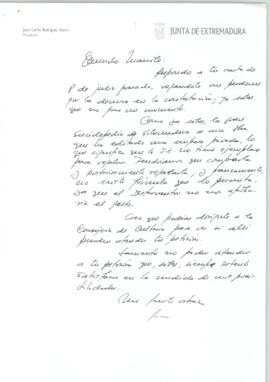 Juan Carlos Rodríguez Ibarra
Presidente
JUNTA DE EXTREMADURA
Querido
Respondo a tu carta de
8 de julio pasado, rogándote me perdones
por la demora en la contestación, ya sabes
que no
Como ya sabes, la
Enciclopedia de Extremadura es una obra
que ha editado una empresa privada, lo
que significa que la J. E. no tiene ejemplares
para regalar. Tendríamos que comprarla
y posteriormente regalarla, y
no existe fórmula que lo permita
ya que el Interventor no nos
el gasto.
Creo que podrías dirigirte a la
Consejería de Cultura para ver si allí
pueden atender tu petición.
Lamento no poder atender
a tu petición que, sabes, siempre
en la medida de mis posi-
bilidades.
Un fuerte abrazo